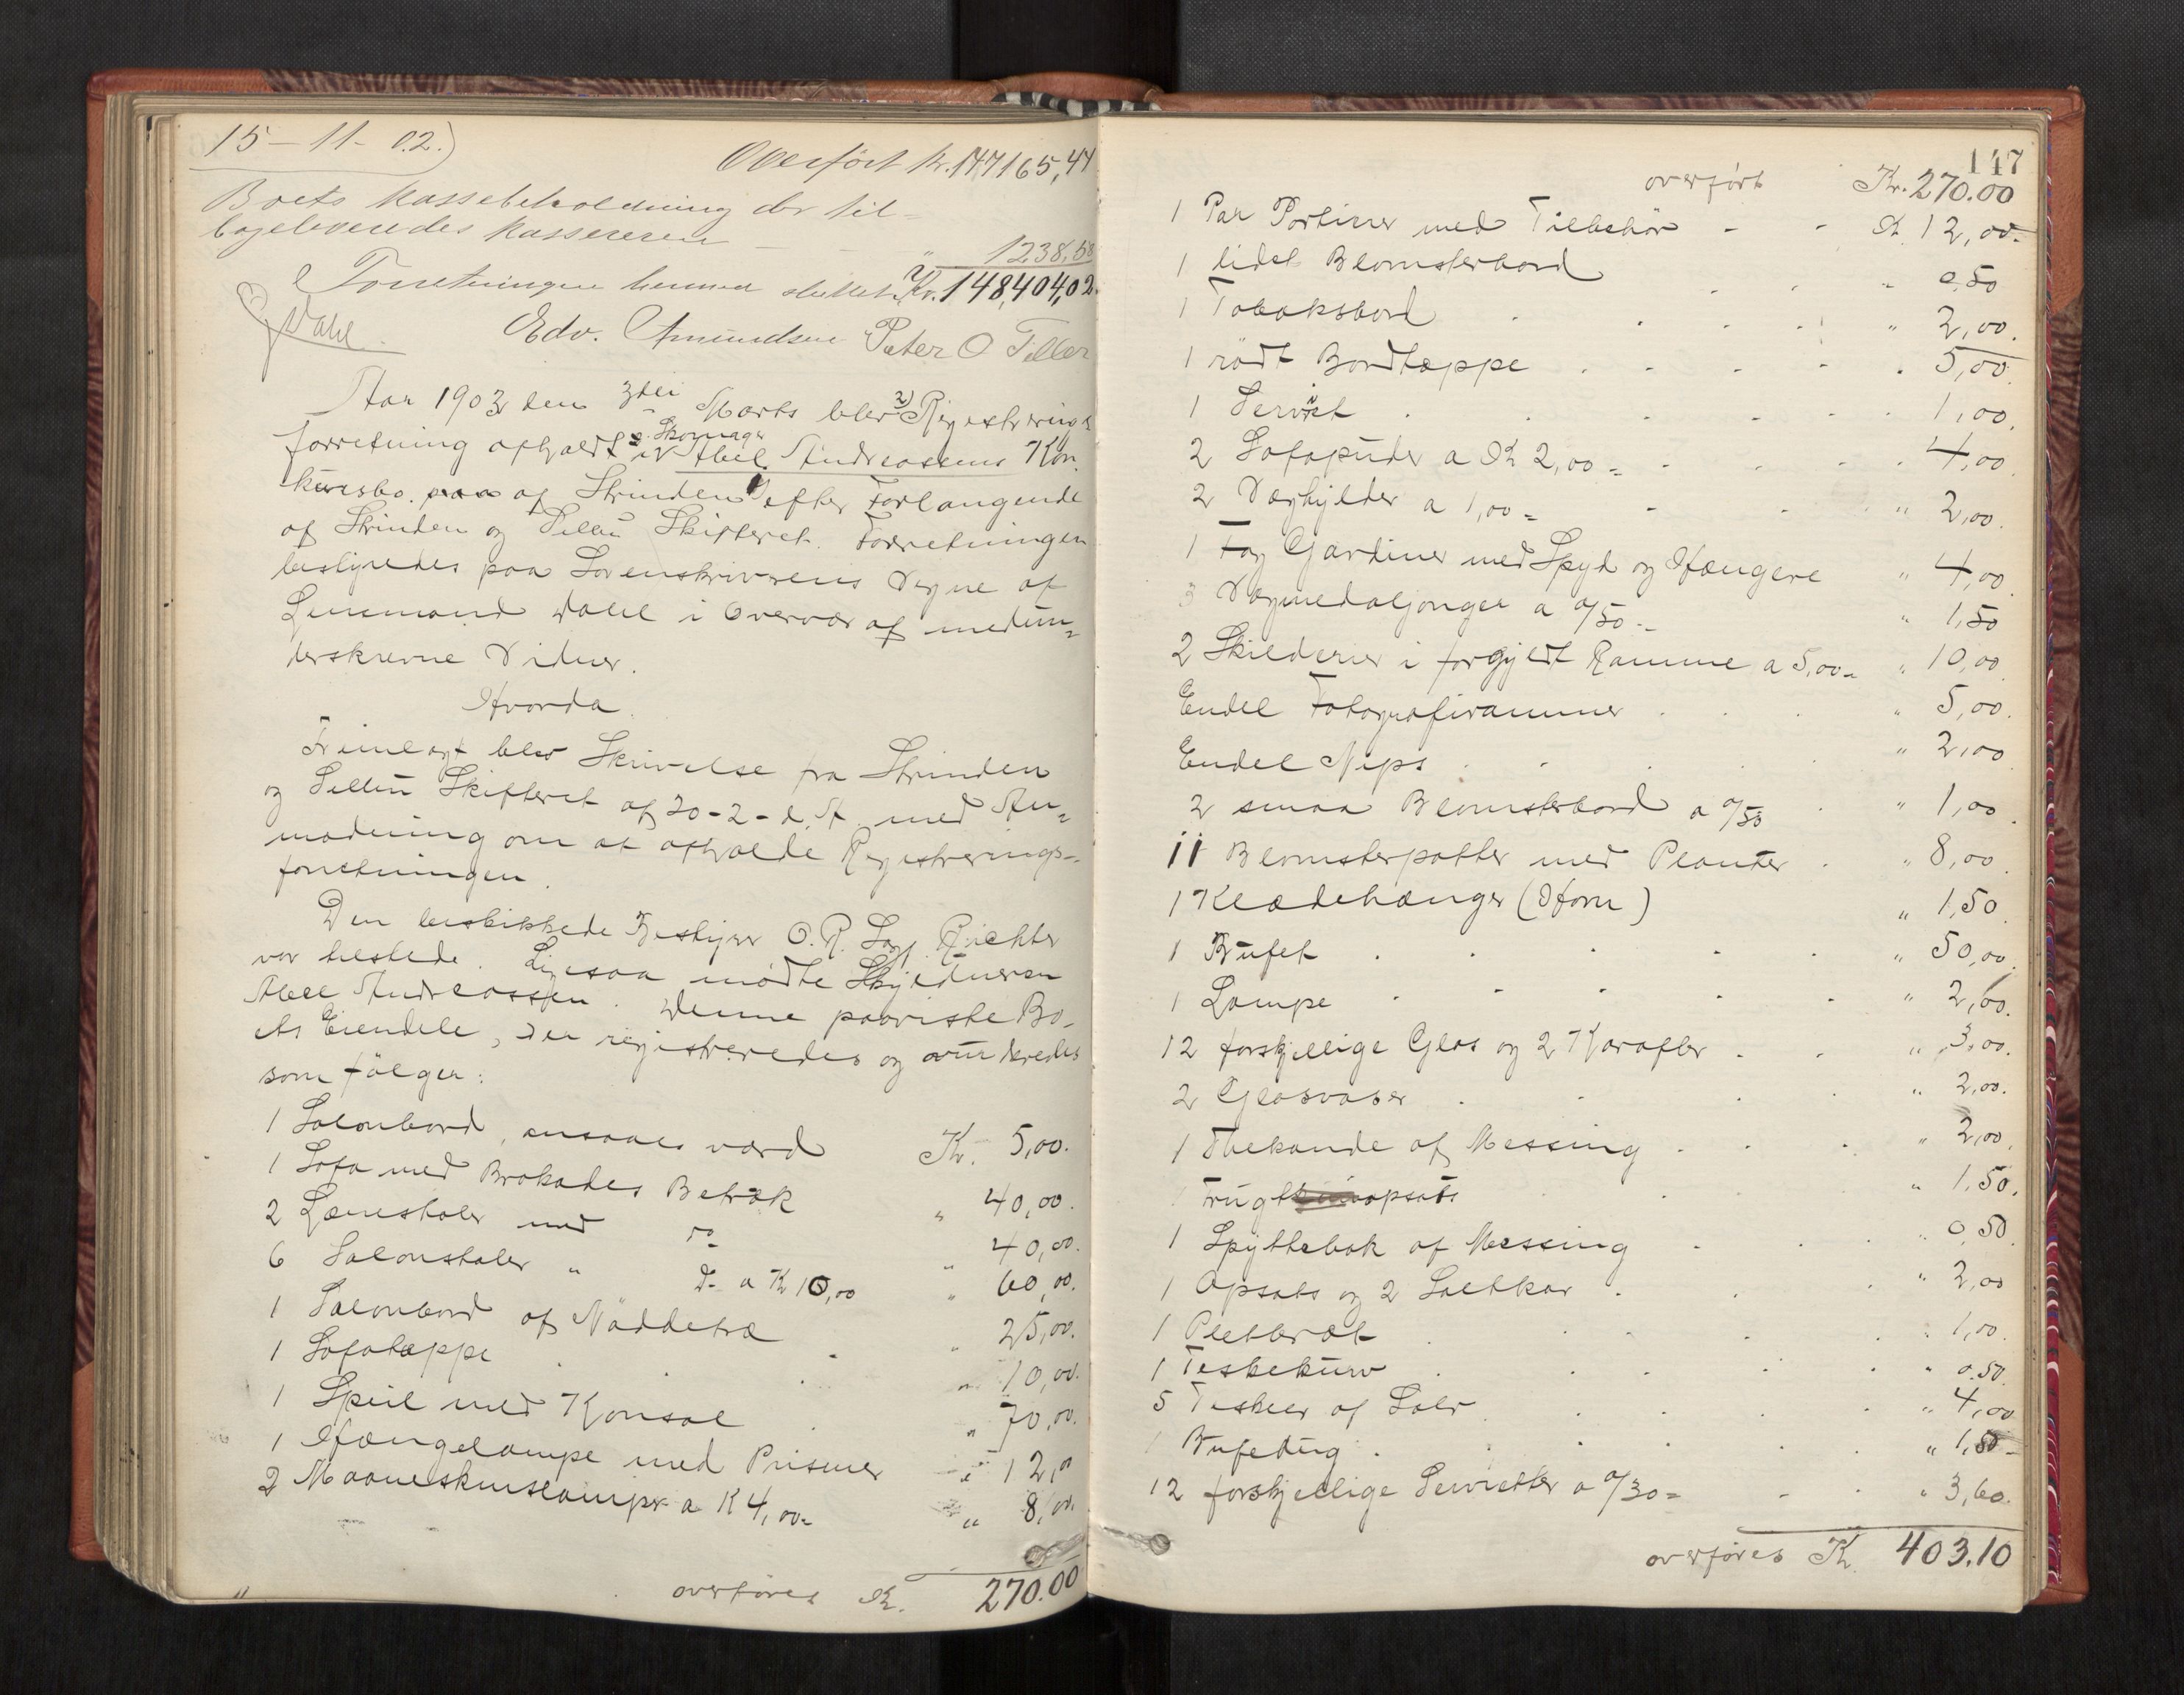 15-11-02.)
Overført Kr. 147165,44
Boets Kassebeholdning der til-
bageleveredes Kassereren - - " 1238,58
Forretningen hermed sluttet. Kr. 148,404,02.
Dahl. Edv. Amundsen Peter O Tiller
Aar 1903 den 3die Marts blev 2) Registrerings
forretning afholdt i Skomager Abel Andreassens Kon-
kursbo af Strinden efter Forlangende
af Strinden og Selbu Skifteret. Forretningen
bestyredes paa Sorenskriverens Vegne af
Lensmand Dahl i Overvær af medun-
derskrevne Vidner.
Hvorda
Fremlagt blev Skrivelse fra Strinden
og Selbu Skifteret af 20-2-d.A. med An-
modning om at afholde Registrerings-
forretningen.
Den beskikkede Bestyrer O.R. Sagf. Richter
var tilstede. Ligesaa mødte Skyldneren
Abel Andreassen. Denne paaviste Bo-
ets Eiendele, der registreredes og vurderedes
som følger:
1 Salonbord, ansaaes værd Kr. 5,00.
1 Sofa med Brokades Betræk " 40,00.
2 Lænestoler med do " 40,00.
6 Salonstoler " do a K 10,00 " 60,00.
1 Salonbord af Nøddetræ " 25,00.
1 Sofatæppe . . " 10,00.
1 Speil med Konsol . " 70,00.
1 Hængelampe med Prismer " 12,00
2 Maaneskinslamper a K 4,00- " 8,00.
overføres K. 270.00
147
overført Kr. 270.00
1 Par Portierer med Tilbehør - - K 12,00-
1 lidet Blomsterbord . . - 0,50
1 Tobaksbord . . . . " 2,00.
1 rødt Bordtæppe . . . . . 5,00.
1 Serviet . . . . . 1,00.
2 Sofapuder a K 2,00- . . . 4,00.
2 Væghylder a 1,00- - . " 2,00.
1 Fag Gardiner med Spyd og Hængere " 4,00.
3 Vægmedaljonger a 0/50- " 1,50
2 Skilderier i forgyldt Ramme a 5,00- " 10,00.
Endel Fotografirammer . . . " 5,00.
Endel Nips . . . . " 2,00
2 smaa Blomsterbord a 0/50 . " 1,00.
11 Blomsterpotter med Planter . " 8,00.
1 Klædehænger (Horn) " 1,50.
1 Bufet . . . . . " 50,00.
1 Lampe . . . . . " 2,00.
12 forskjellige Glas og 2 Karafler . . " 3,00.
2 Glasvaser . . . . " 2,00.
1 Thekande af Messing . . . " 2,00.
1 Frugtopsats . . " 1,50.
1 Spyttebak af Messing . . . " 0,50.
1 Opsats og 2 Saltkar . . . " 2,00
1 Pletbræt . . . . . " 1,00.
1 Teskekurv . . . . " 0.50.
5 Teskeer af Sølv . . . . " 4,00
1 Bufetdug . . . . . " 1,50-
12 forskjellige Servietter a 0/30- - . " 3,60.
overføres K. 403.10